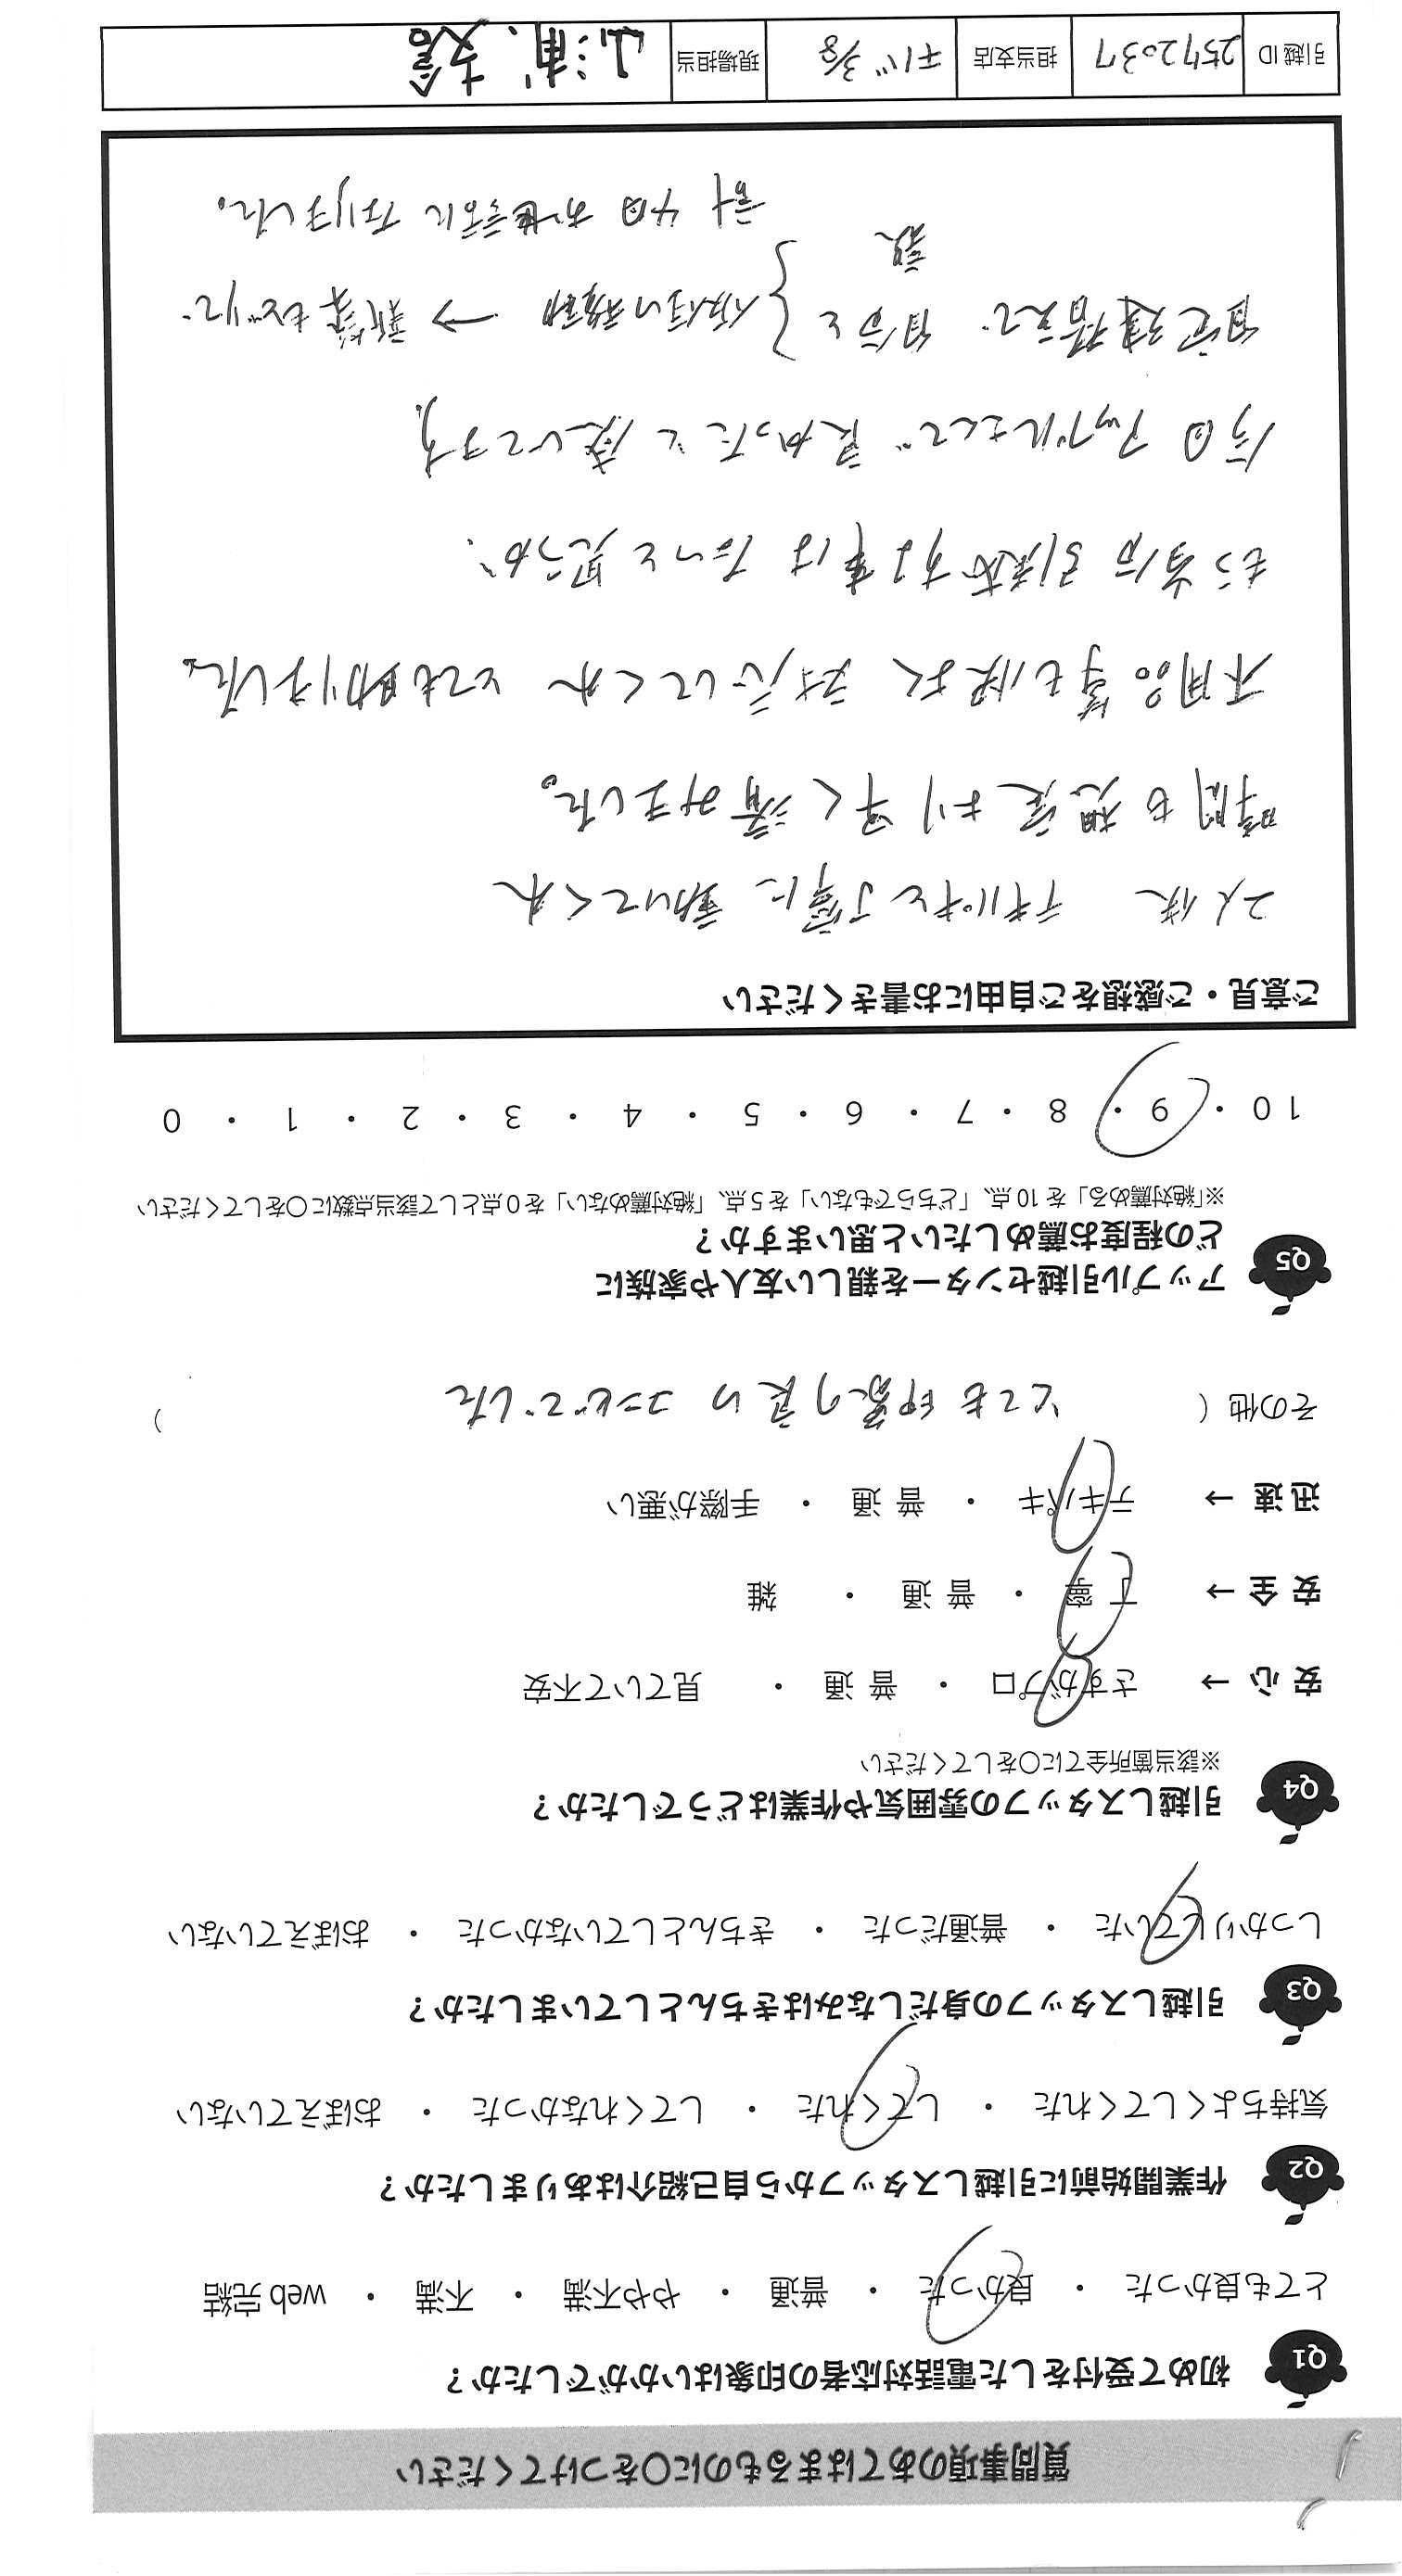 質問事項のあてはまるものに○をつけてください
Q1 初めて受付をした電話対応者の印象はいかがでしたか？
とても良かった ・ 良かった ・ 普通 ・ やや不満 ・ 不満 ・ web 完結
Q2 作業開始前に引越しスタッフから自己紹介はありましたか？
気持ちよくしてくれた ・ してくれた ・ してくれなかった ・ おぼえていない
Q3 引越しスタッフの身だしなみはきちんとしていましたか？
しっかりしていた ・ 普通だった ・ きちんとしていなかった ・ おぼえていない
Q4 引越しスタッフの雰囲気や作業はどうでしたか？
※該当箇所全てに○をしてください
安 心 → さすがプロ ・ 普 通 ・ 見ていて不安
安 全 → 丁 寧 ・ 普 通 ・ 雑
迅 速 → テキパキ ・ 普 通 ・ 手際が悪い
その他（ とても印象の良い コンビでした ）
Q5 アップル引越センターを親しい友人や家族に
どの程度お薦めしたいと思いますか？
※「絶対薦める」を 10 点、「どちらでもない」を 5 点、「絶対薦めない」を 0 点として該当点数に○をしてください
10 ・ 9 ・ 8 ・ 7 ・ 6 ・ 5 ・ 4 ・ 3 ・ 2 ・ 1 ・ 0
ご意見・ご感想をご自由にお書きください
2人供 テキパキと丁寧に 動いてくれ
時間も想定より早く済みました。
不用品等も快よく 対応してくれ とても助りました。
もう当分 引越する事は ないと思うが、
今回 アップルさんで 良かったと 感じてます。
自宅建替えで 自分と 仮住い移動 → 新築もどりで
親
計 4回 お世話に なりました。
引越 ID 2572037 担当支店 チバ 3/8 現場担当 山浦、